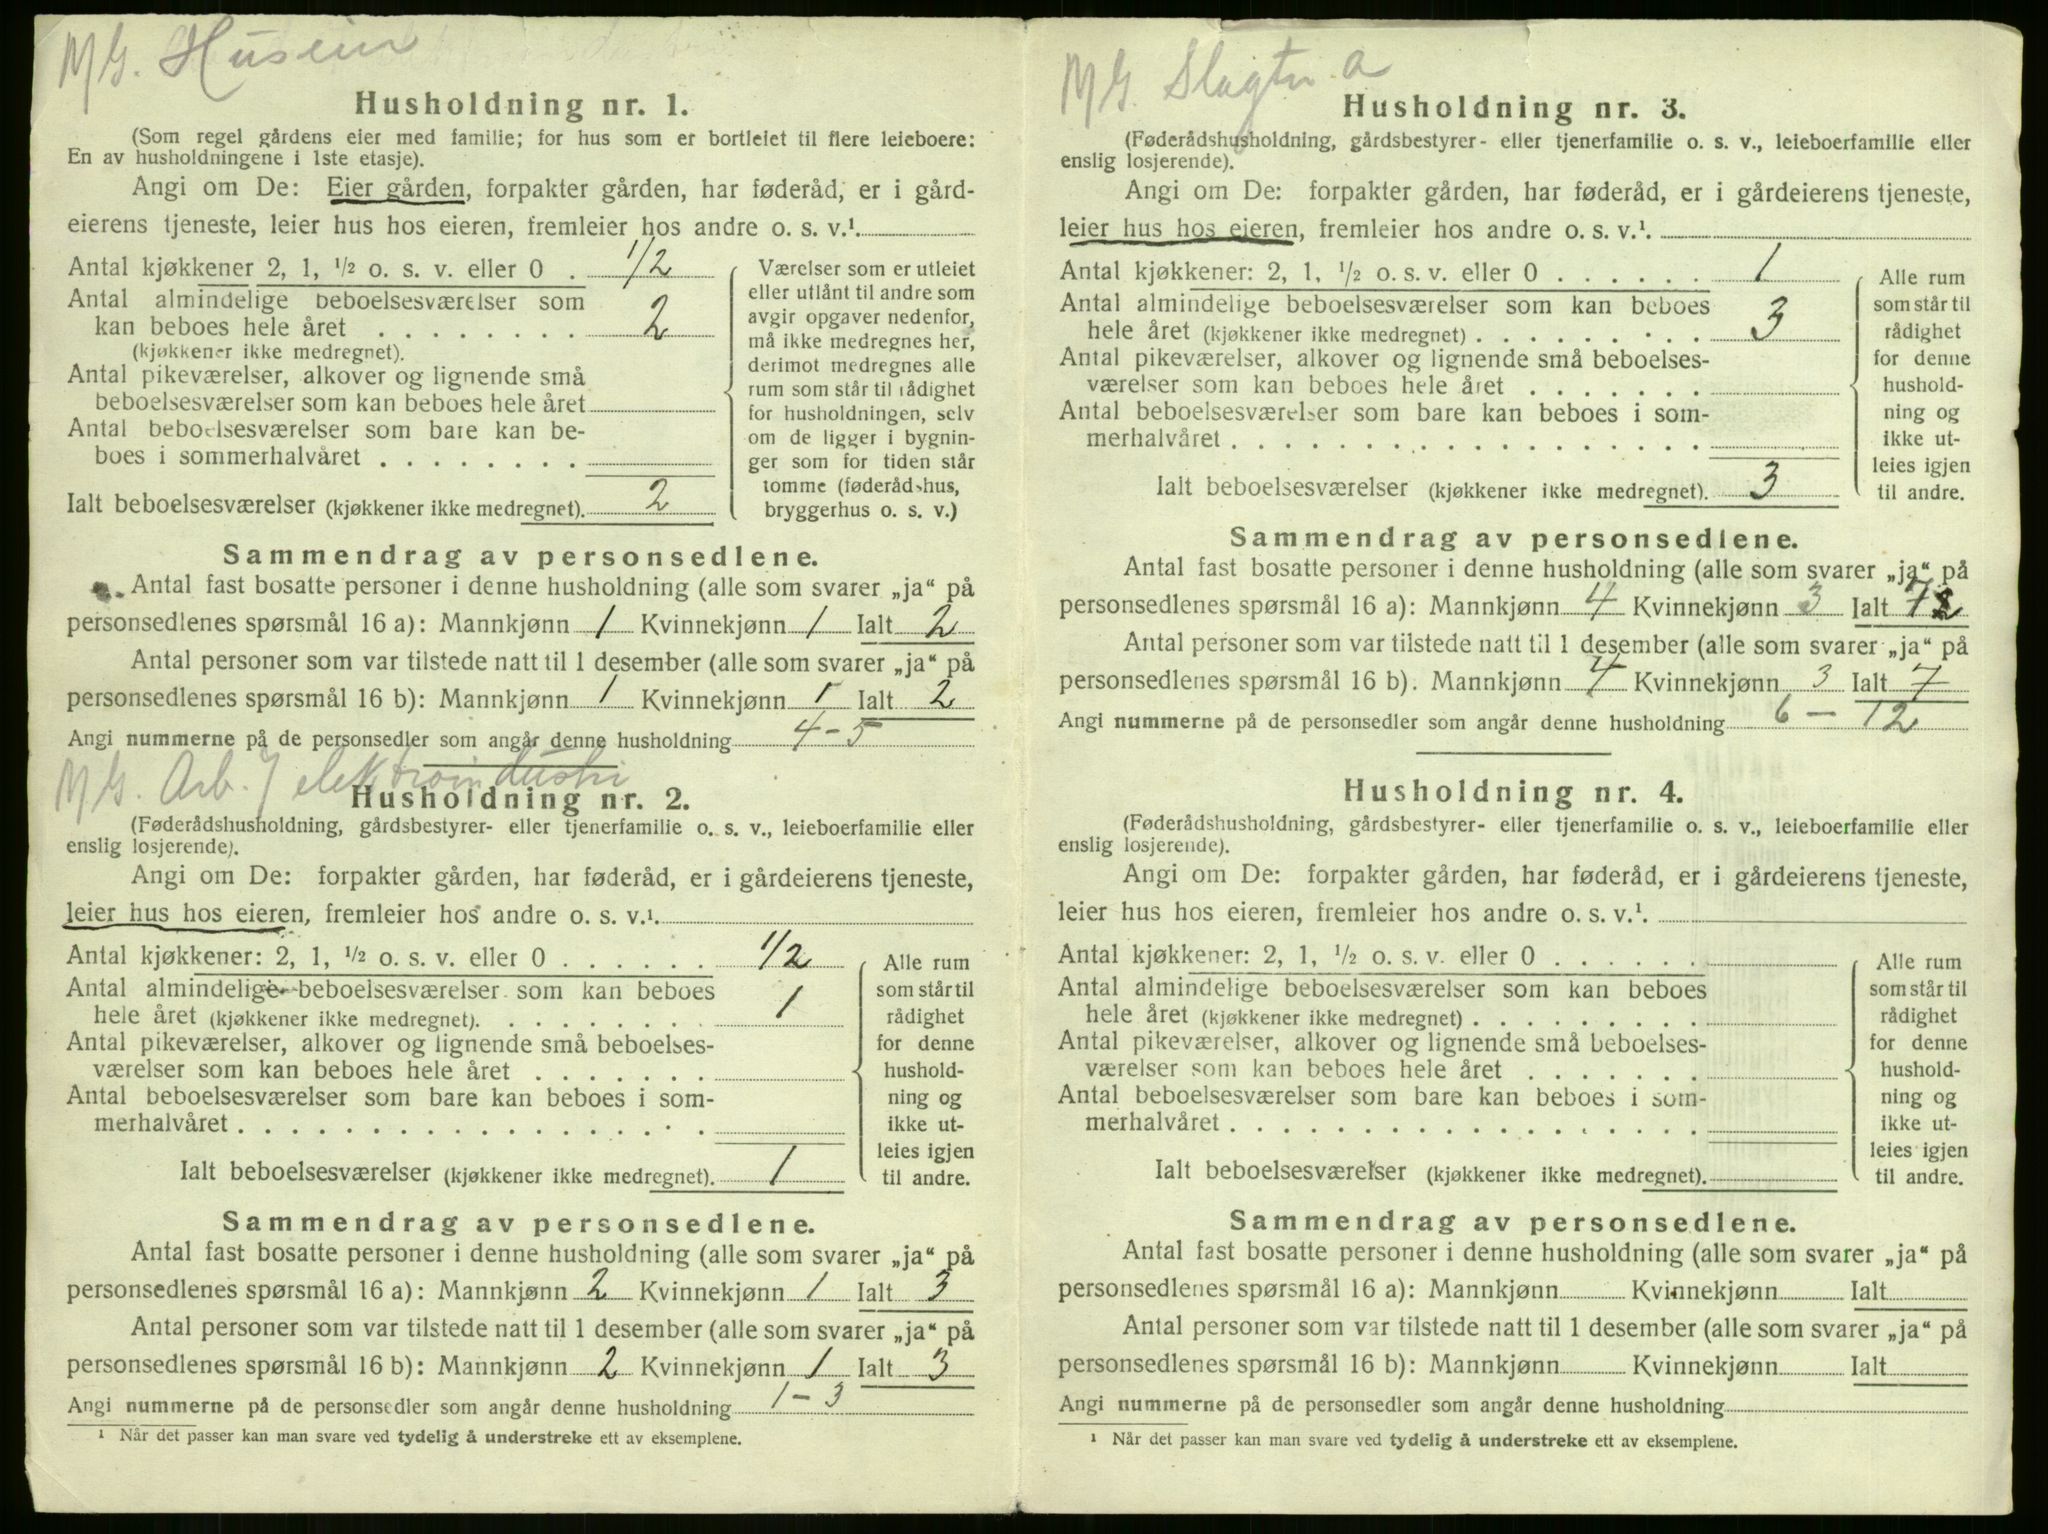 M G. Huseier
Husholdning nr. 1.
(Som regel gårdens eier med familie; for hus som er bortleiet til flere leieboere:
En av husholdningene i 1ste etasje).
Angi om De: Eier gården, forpakter gården, har føderåd, er i gård-
eierens tjeneste, leier hus hos eieren, fremleier hos andre o. s. v.¹
Antal kjøkkener 2, 1, ½ o. s. v. eller 0 . 1/2
Antal almindelige beboelsesværelser som
kan beboes hele året . . . . . . . . 2
(kjøkkener ikke medregnet).
Antal pikeværelser, alkover og lignende små
beboelsesværelser som kan beboes hele året
Antal beboelsesværelser som bare kan be-
boes i sommerhalvåret . . . . . . . .
Ialt beboelsesværelser (kjøkkener ikke medregnet). 2
Værelser som er utleiet
eller utlånt til andre som
avgir opgaver nedenfor,
må ikke medregnes her,
derimot medregnes alle
rum som står til rådighet
for husholdningen, selv
om de ligger i bygnin-
ger som for tiden står
tomme (føderådshus,
bryggerhus o. s. v.)
Sammendrag av personsedlene.
Antal fast bosatte personer i denne husholdning (alle som svarer „ja“ på
personsedlenes spørsmål 16 a): Mannkjønn 1 Kvinnekjønn 1 Ialt 2
Antal personer som var tilstede natt til 1 desember (alle som svarer „ja“ på
personsedlenes spørsmål 16 b): Mannkjønn 1 Kvinnekjønn 1 Ialt 2
Angi nummerne på de personsedler som angår denne husholdning 4-5
M G. Arb. i elektroindustri
Husholdning nr. 2.
(Føderådshusholdning, gårdsbestyrer- eller tjenerfamilie o. s. v., leieboerfamilie eller
enslig losjerende).
Angi om De: forpakter gården, har føderåd, er i gårdeierens tjeneste,
leier hus hos eieren, fremleier hos andre o. s. v.¹
Antal kjøkkener: 2, 1, ½ o. s. v. eller 0 . . . . . . 1/2
Antal almindelige beboelsesværelser som kan beboes
hele året (kjøkkener ikke medregnet). . . . . . . . . 1
Antal pikeværelser, alkover og lignende små beboelses-
værelser som kan beboes hele året . . . . . . .
Antal beboelsesværelser som bare kan beboes i som-
merhalvåret . . . . . . . . . . . . . . . . . .
Ialt beboelsesværelser (kjøkkener ikke medregnet). 1
Alle rum
som står til
rådighet
for denne
hushold-
ning og
ikke ut-
leies igjen
til andre.
Sammendrag av personsedlene.
Antal fast bosatte personer i denne husholdning (alle som svarer „ja“ på
personsedlenes spørsmål 16 a): Mannkjønn 2 Kvinnekjønn 1 Ialt 3
Antal personer som var tilstede natt til 1 desember (alle som svarer „ja“ på
personsedlenes spørsmål 16 b): Mannkjønn 2 Kvinnekjønn 1 Ialt 3
Angi nummerne på de personsedler som angår denne husholdning 1-3
¹ Når det passer kan man svare ved tydelig å understreke ett av eksemplene.
M G. Slagter a
Husholdning nr. 3.
(Føderådshusholdning, gårdsbestyrer- eller tjenerfamilie o. s. v., leieboerfamilie eller
enslig losjerende).
Angi om De: forpakter gården, har føderåd, er i gårdeierens tjeneste,
leier hus hos eieren, fremleier hos andre o. s. v.¹.
Antal kjøkkener: 2, 1, ½ o. s. v. eller 0 . . . . . . 1
Antal almindelige beboelsesværelser som kan beboes
hele året (kjøkkener ikke medregnet) . . . . . . . . . 3
Antal pikeværelser, alkover og lignende små beboelses-
værelser som kan beboes hele året . . . . . . .
Antal beboelsesværelser som bare kan beboes i som-
merhalvåret . . . . . . . . . . . . . . . . . .
Ialt beboelsesværelser (kjøkkener ikke medregnet). 3
Alle rum
som står til
rådighet
for denne
hushold-
ning og
ikke ut-
leies igjen
til andre.
Sammendrag av personsedlene.
Antal fast bosatte personer i denne husholdning (alle som svarer „ja“ på
personsedlenes spørsmål 16 a): Mannkjønn 4 Kvinnekjønn 3 Ialt 7
Antal personer som var tilstede natt til 1 desember (alle som svarer „ja“ på
personsedlenes spørsmål 16 b). Mannkjønn 4 Kvinnekjønn 3 Ialt 7
Angi nummerne på de personsedler som angår denne husholdning 6 - 12
Husholdning nr. 4.
(Føderådshusholdning, gårdsbestyrer- eller tjenerfamilie o. s. v., leieboerfamilie eller
enslig losjerende).
Angi om De: forpakter gården, har føderåd, er i gårdeierens tjeneste,
leier hus hos eieren, fremleier hos andre o. s. v.¹.
Antal kjøkkener: 2, 1, ½ o. s. v. eller 0 . . . . . .
Antal almindelige beboelsesværelser som kan beboes
hele året (kjøkkener ikke medregnet) . . . . . . . . .
Antal pikeværelser, alkover og lignende små beboelses-
værelser som kan beboes hele året . . . . . . .
Antal beboelsesværelser som bare kan beboes i som-
merhalvåret . . . . . . . . . . . . . . . . . .
Ialt beboelsesværelser (kjøkkener ikke medregnet).
Alle rum
som står til
rådighet
for denne
hushold-
ning og
ikke ut-
leies igjen
til andre.
Sammendrag av personsedlene.
Antal fast bosatte personer i denne husholdning (alle som svarer „ja“ på
personsedlenes spørsmål 16 a): Mannkjønn Kvinnekjønn Ialt
Antal personer som var tilstede natt til 1 desember (alle som svarer „ja“ på
personsedlenes spørsmål 16 b): Mannkjønn Kvinnekjønn Ialt
Angi nummerne på de personsedler som angår denne husholdning
¹ Når det passer kan man svare ved tydelig å understreke ett av eksemplene.